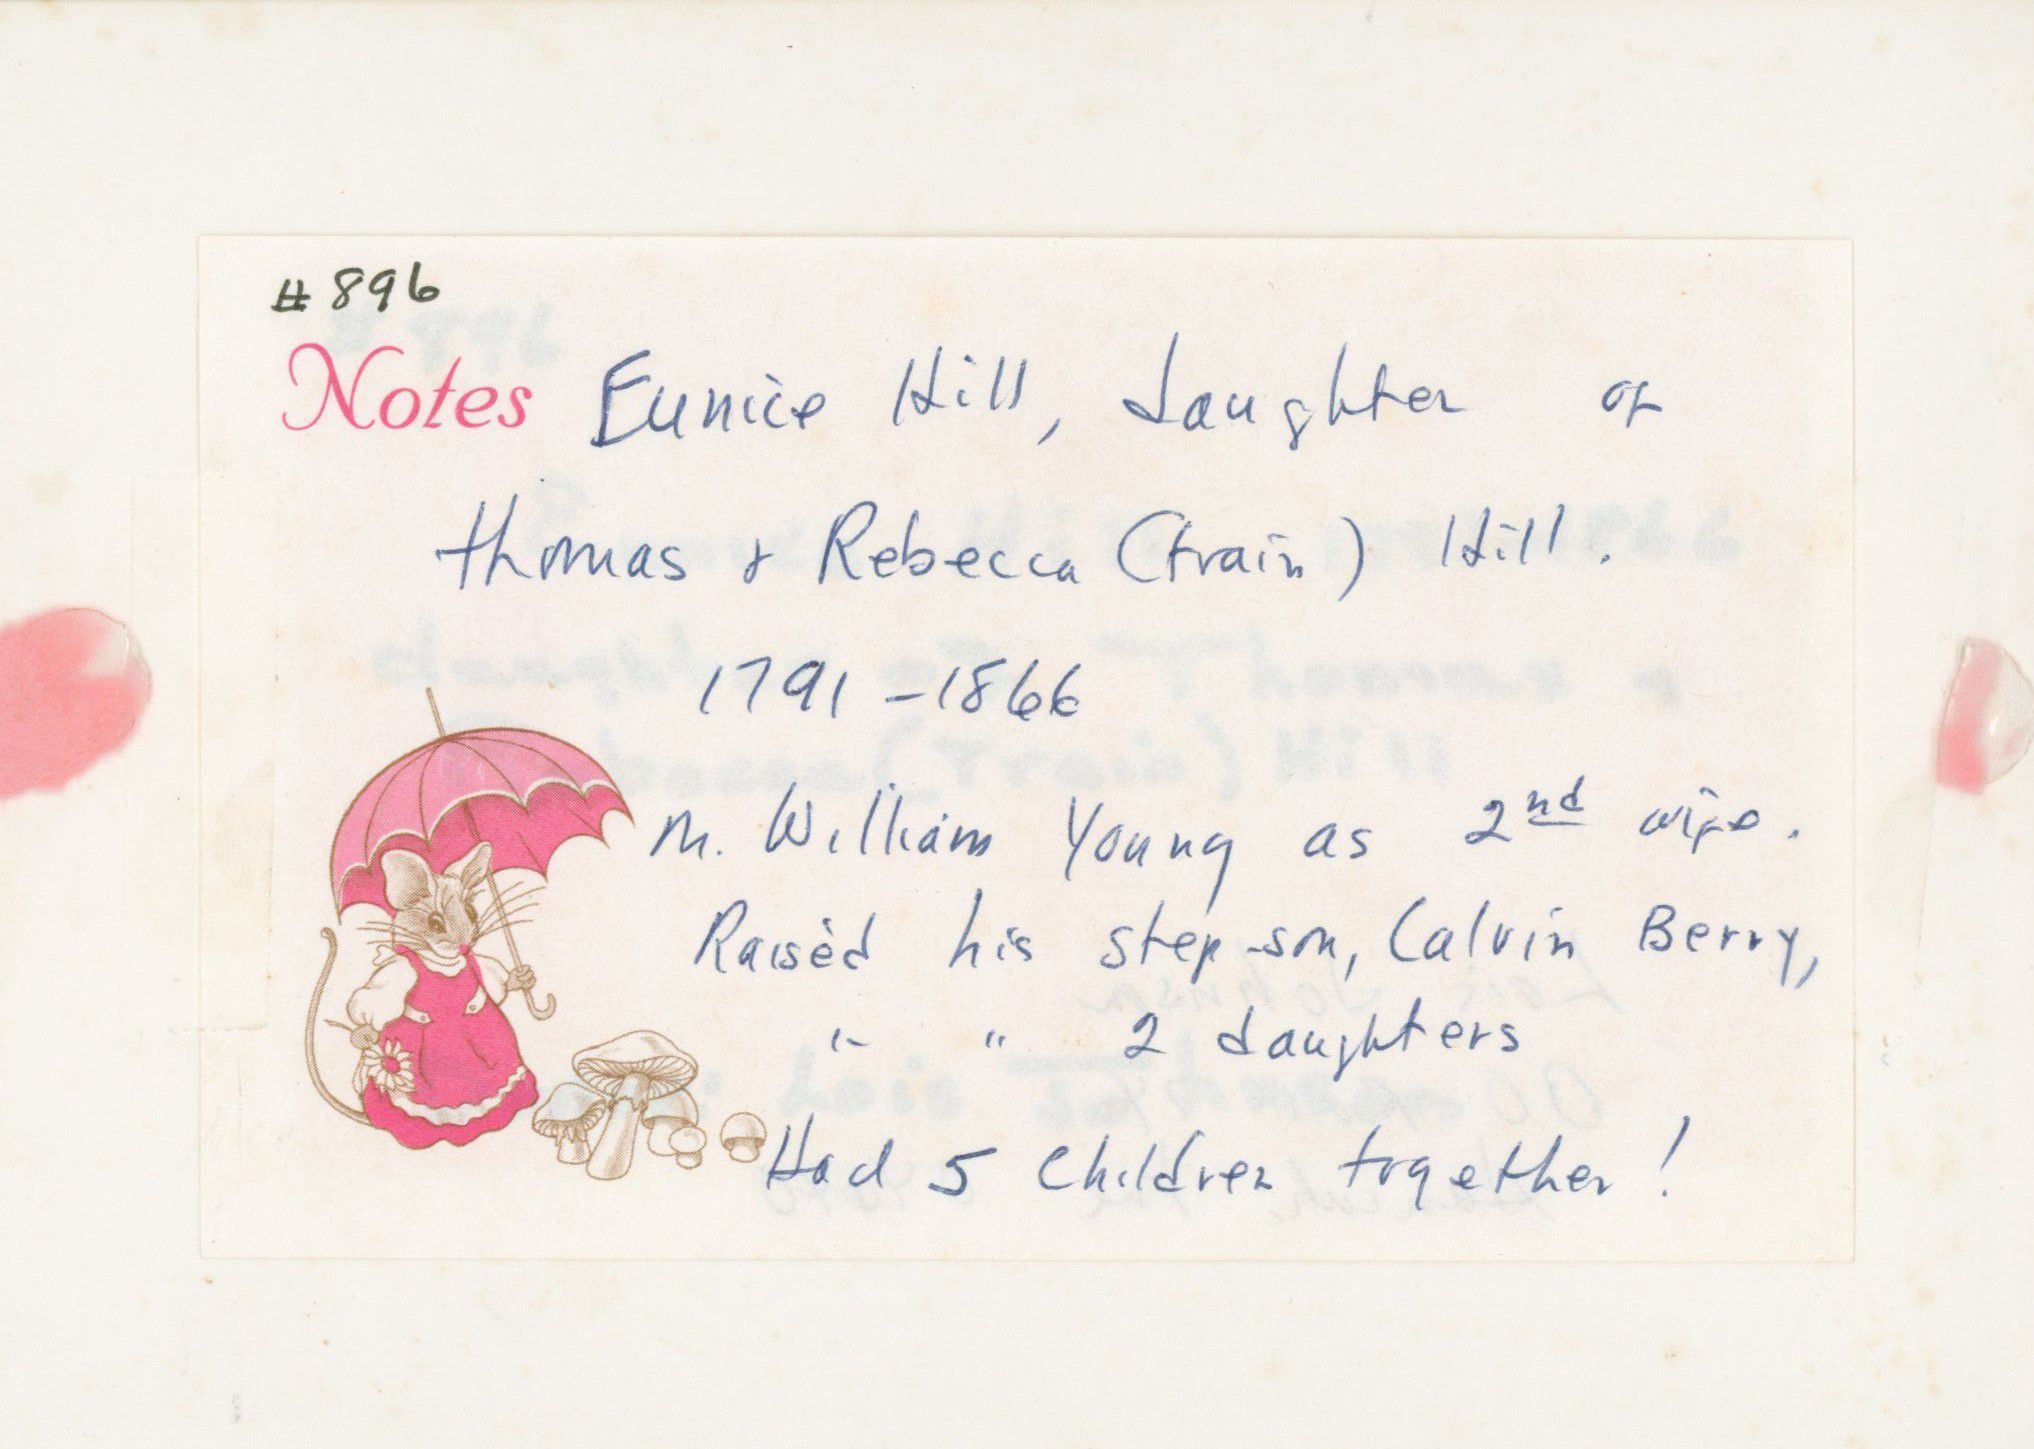 #896
Notes Eunice Hill, daughter of
Thomas & Rebecca (Train) Hill.
1791-1866
M. William Young as 2nd wife.
Raised his step-son, Calvin Berry,
" " 2 daughters
Had 5 Children together!